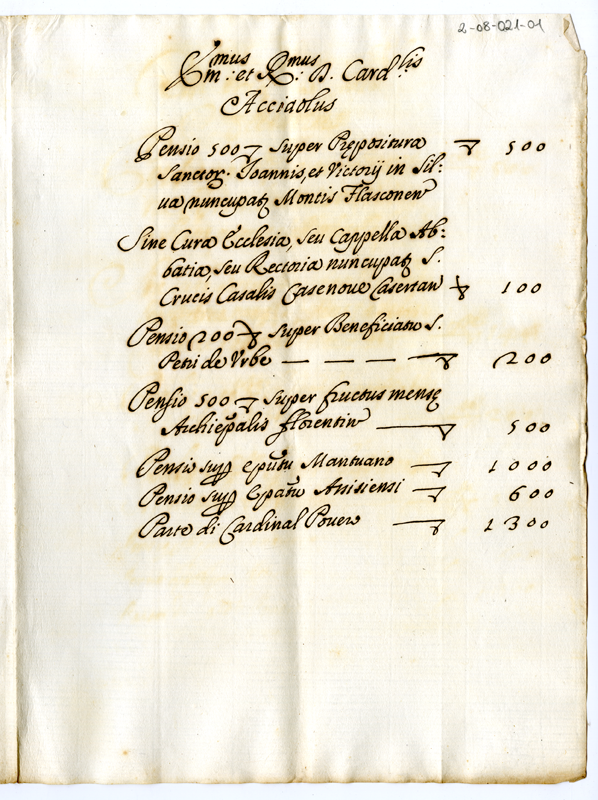 2-08-021-01
Em:mus et R:mus D. Card:lis
Acciaolus
Pensio 500 ▽ Super Prępositura ▽ 500
Sanctor. Ioannis, et Victorij in Sil:
ua nuncupat Montis Flasconen
Sine Cura Ecclesia, seu Cappella Ab:
batia, seu Rectoria nuncupat S.
Crucis Casalis Casenoue Casertan ▽ 100
Pensio 200 ▽ Super Beneficiatu S.
Petri de Vrbe — — — — ▽ 200
Pensio 500 ▽ Super fructus mensę
Archiepalis florentin — ▽ 500
Pensio sup eputu Mantuano — ▽ 1000
Pensio sup Epatu Assisiensi — ▽ 600
Parte di Cardinal Pouero — ▽ 1300